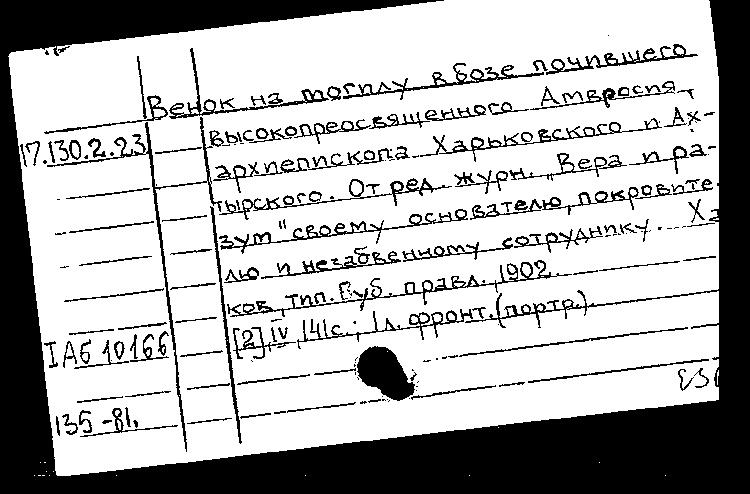 Венок на могилу в бозе почившего
17.130.2.23
высокопреосвященного Амвросия,
архиепископа Харьковского и Ах-
тырского. От ред. журн. „Вера и ра-
зум" своему основателю, покровите-
лю и незабвенному сотруднику. Ха
ков, тип. Губ. правл., 1902.
[2], IV, 141 с.; 1 л. фронт. (портр.).
IАб 10166
135-81.